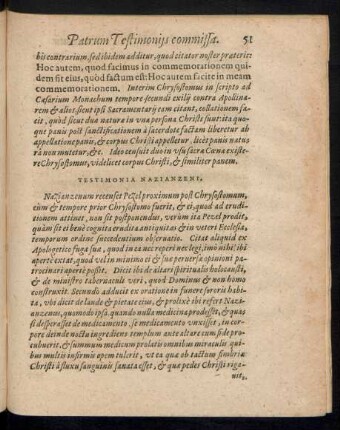 Patrum Testimonijs commissa. 51
bis contrarium, sed ibidem additur, quod citator noster præterit:
Hoc autem, quod facimus in commemorationem qui-
dem fit eius, quòd factum est: Hoc autem facite in meam
commemorationem. Interim Chrysostomus in scripto ad
Cæsarium Monachum tempore secundi exilij contra Apollina-
rem & alios, sicut ipsi Sacramentarij eam citant, collationem fa-
cit, quòd sicut duæ naturæ in vna persona Christi sunt: ita quo-
que panis post sanctificationem à sacerdote factam liberetur ab
appellatione panis, & corpus Christi appelletur, licet panis natu-
ra non mutetur, &c. Ideo consuit duo in vsu sacræ Cœnæ existe-
re Chrysostomum, videlicet corpus Christi, & similiter panem.
TESTIMONIA NAZIANZENI,
Nazianzenum recenset Pezel proximum post Chrysostomum,
cùm & tempore prior Chrysostomo fuerit, & ei, quod ad erudi-
tionem attinet, non sit postponendus, verùm ita Pezel prodit,
quàm sit ei benè cognita erudita antiquitas & in veteri Ecclesia,
temporum ordine succedentium obseruatio. Citat aliquid ex
Apologetico fuga sua, quod in ea nec reperi nec legi, imò nihil ibi
apertè extat, quod vel in minimo ei & suæ peruersæ opinioni pa-
trocinari apertè possit. Dicit ibi de altari spiritualis holocausti,
& de ministro tabernaculi veri, quod Dominus & non homo
construxit. Secundò adducit ex oratione in funere sororis habi-
ta, vbi dicit de laude & pietate eius, & prolixè ibi refert Nazi-
anzenum, quomodo ipsa, quando nulla medicina prodesset, & quasi
desperasset de medicamento, se medicamento vnxisset, in cor-
pore deinde nocta ingrediens templum ante altare eam side pro-
cubuerit, & summum medicum prolatis omnibus miraculis qui-
bus multis infirmis opem tulerit, vt ea quæ ob tactum fimbriæ
Christi à fluxu sanguinis sanata esset, & quæ pedes Christi riga-
uit,